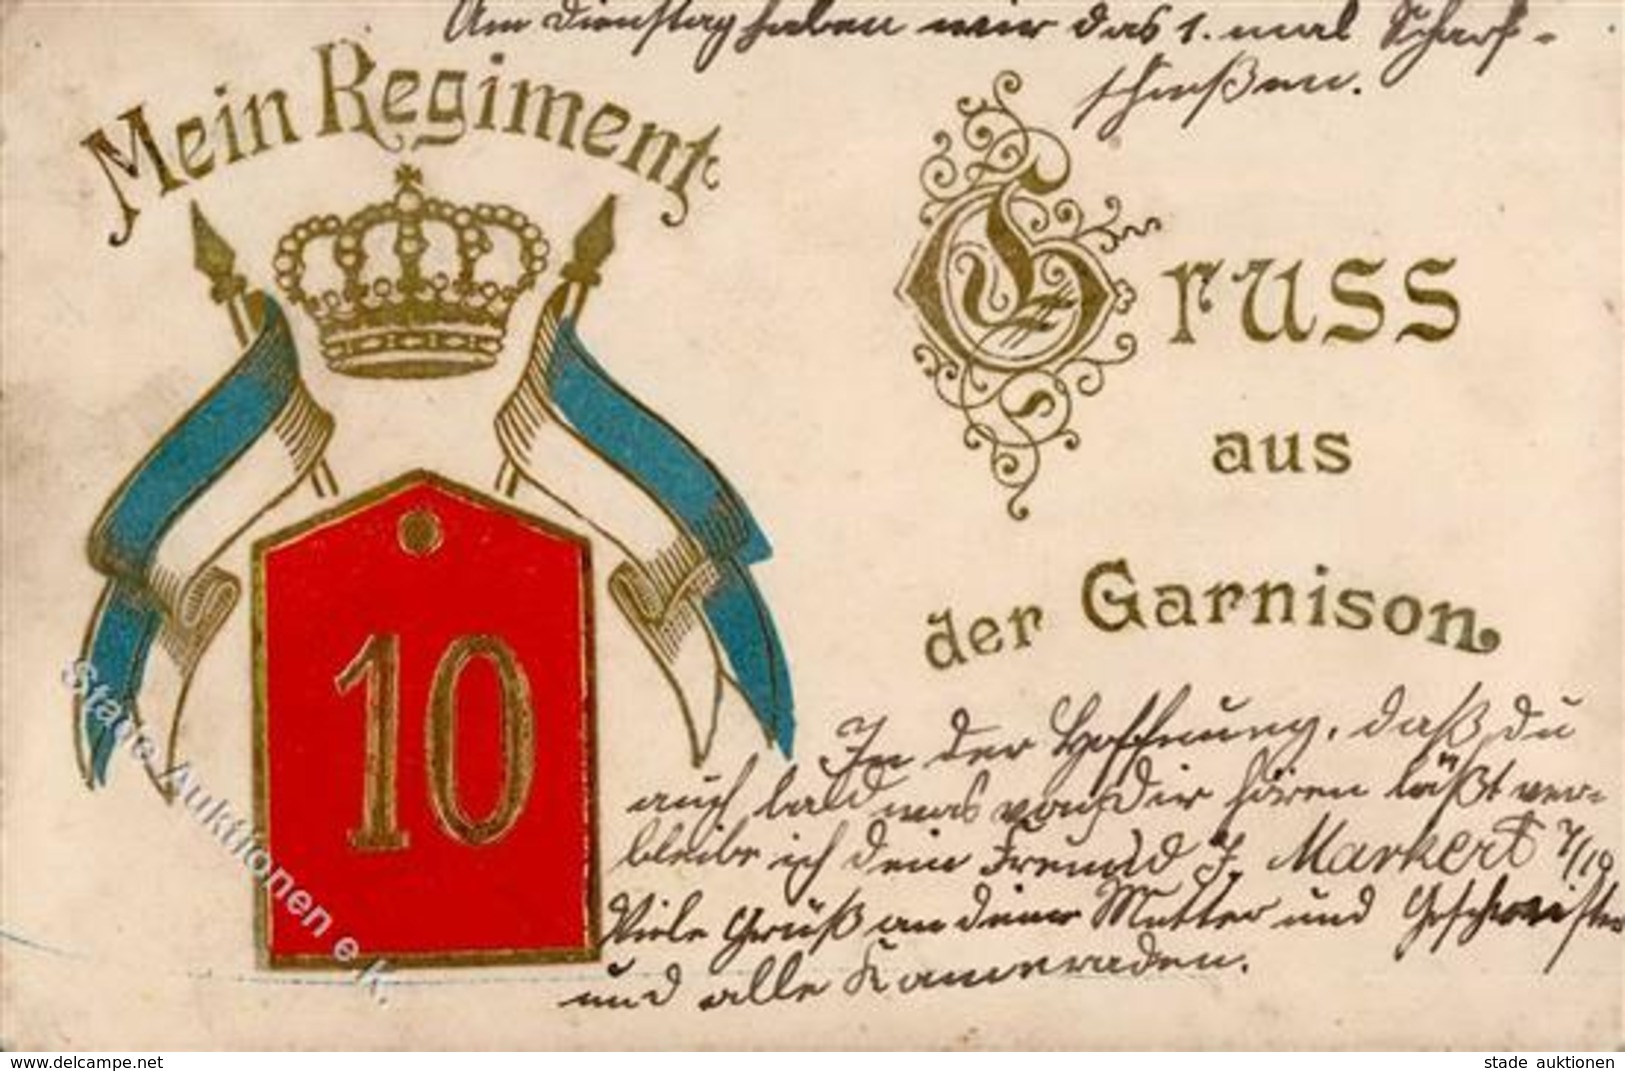 Am Dienstag haben wir das 1. mal Scharf-
schießen.
Mein Regiment
Gruss
aus
der Garnison
10
In der Hoffnung, daß du
auch bald was von Dir hören läßt ver-
bleibe ich dein Freund J. Markert 7/10
Viele Grüß an deine Mutter und Geschwister
und alle Kameraden.
Stade Auktionen e.K.
www.delcampe.net
stade auktionen